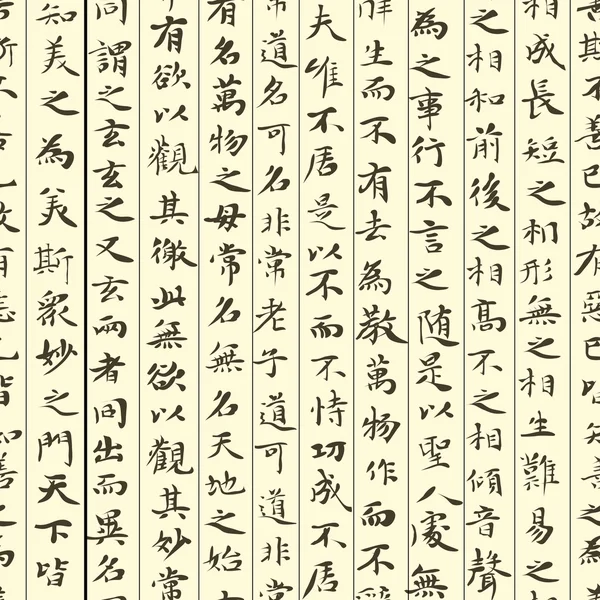 善斯不善已故有惡已皆知善之為
相成長短之相形無之相生難易之
之相和前後之相高不之相傾音聲
為之事行不言之随是以聖人處無
生而不有去為教萬物作而不辭
夫唯不居是以不而不恃功成不居
常道名可名非常老子道可道非常
有名萬物之母常名無名天地之始
有欲以觀其徼此無欲以觀其妙常
同謂之玄玄之又玄兩者同出而異名
知美之為美斯眾妙之門天下皆